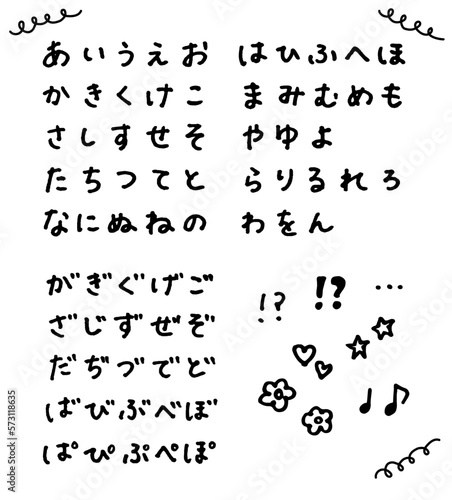 あいうえお
かきくけこ
さしすせそ
たちつてと
なにぬねの
はひふへほ
まみむめも
やゆよ
らりるれろ
わをん
がぎぐげご
ざじずぜぞ
だぢづでど
ばびぶべぼ
ぱぴぷぺぽ
!? !? …
Adobe Stock | #573118635